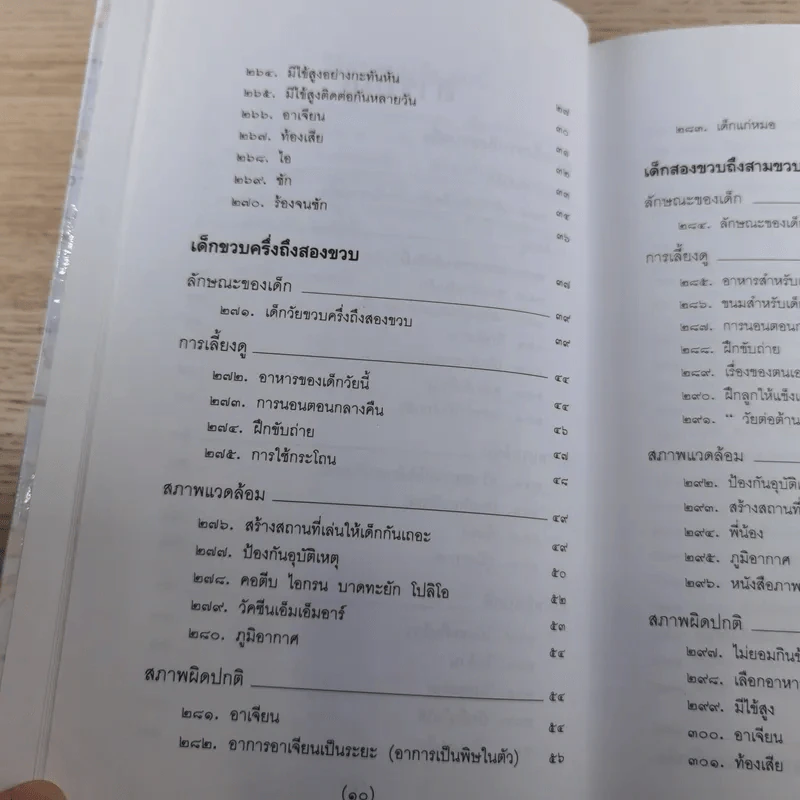 ๒๖๔. มีไข้สูงอย่างกะทันหัน ๒๗
๒๖๕. มีไข้สูงติดต่อกันหลายวัน ๓๐
๒๖๖. อาเจียน ๓๑
๒๖๗. ท้องเสีย ๓๒
๒๖๘. ไอ ๓๓
๒๖๙. ชัก ๓๔
๒๗๐. ร้องจนชัก ๓๖
เด็กขวบครึ่งถึงสองขวบ ๓๗
ลักษณะของเด็ก ๓๙
๒๗๑. เด็กวัยขวบครึ่งถึงสองขวบ ๓๙
การเลี้ยงดู ๔๔
๒๗๒. อาหารของเด็กวัยนี้ ๔๔
๒๗๓. การนอนตอนกลางคืน ๔๖
๒๗๔. ฝึกขับถ่าย ๔๗
๒๗๕. การใช้กระโถน ๔๘
สภาพแวดล้อม ๔๙
๒๗๖. สร้างสถานที่เล่นให้เด็กกันเถอะ ๔๙
๒๗๗. ป้องกันอุบัติเหตุ ๕๐
๒๗๘. คอตีบ ไอกรน บาดทะยัก โปลิโอ ๕๒
๒๗๙. วัคซีนเอ็มเอ็มอาร์ ๕๓
๒๘๐. ภูมิอากาศ ๕๔
สภาพผิดปกติ ๕๔
๒๘๑. อาเจียน ๕๔
๒๘๒. อาการอาเจียนเป็นระยะ (อาการเป็นพิษในตัว) ๕๖
(๑๐)
๒๘๓. เด็กแก่หมอ
เด็กสองขวบถึงสามขวบ
ลักษณะของเด็ก
๒๘๔. ลักษณะของเด็
การเลี้ยงดู
๒๘๕. อาหารสำหรับเ
๒๘๖. ขนมสำหรับเด็
๒๘๗. การนอนตอนก
๒๘๘. ฝึกขับถ่าย
๒๘๙. เรื่องของตนเอ
๒๙๐. ฝึกลูกให้แข็งแ
๒๙๑. “ วัยต่อต้าน
สภาพแวดล้อม
๒๙๒. ป้องกันอุบัติเ
๒๙๓. สร้างสถานที่
๒๙๔. พี่น้อง
๒๙๕. ภูมิอากาศ
๒๙๖. หนังสือภาพ
สภาพผิดปกติ
๒๙๗. ไม่ยอมกินข้
๒๙๘. เลือกอาหา
๒๙๙. มีไข้สูง
๓๐๐. อาเจียน
๓๐๑. ท้องเสีย